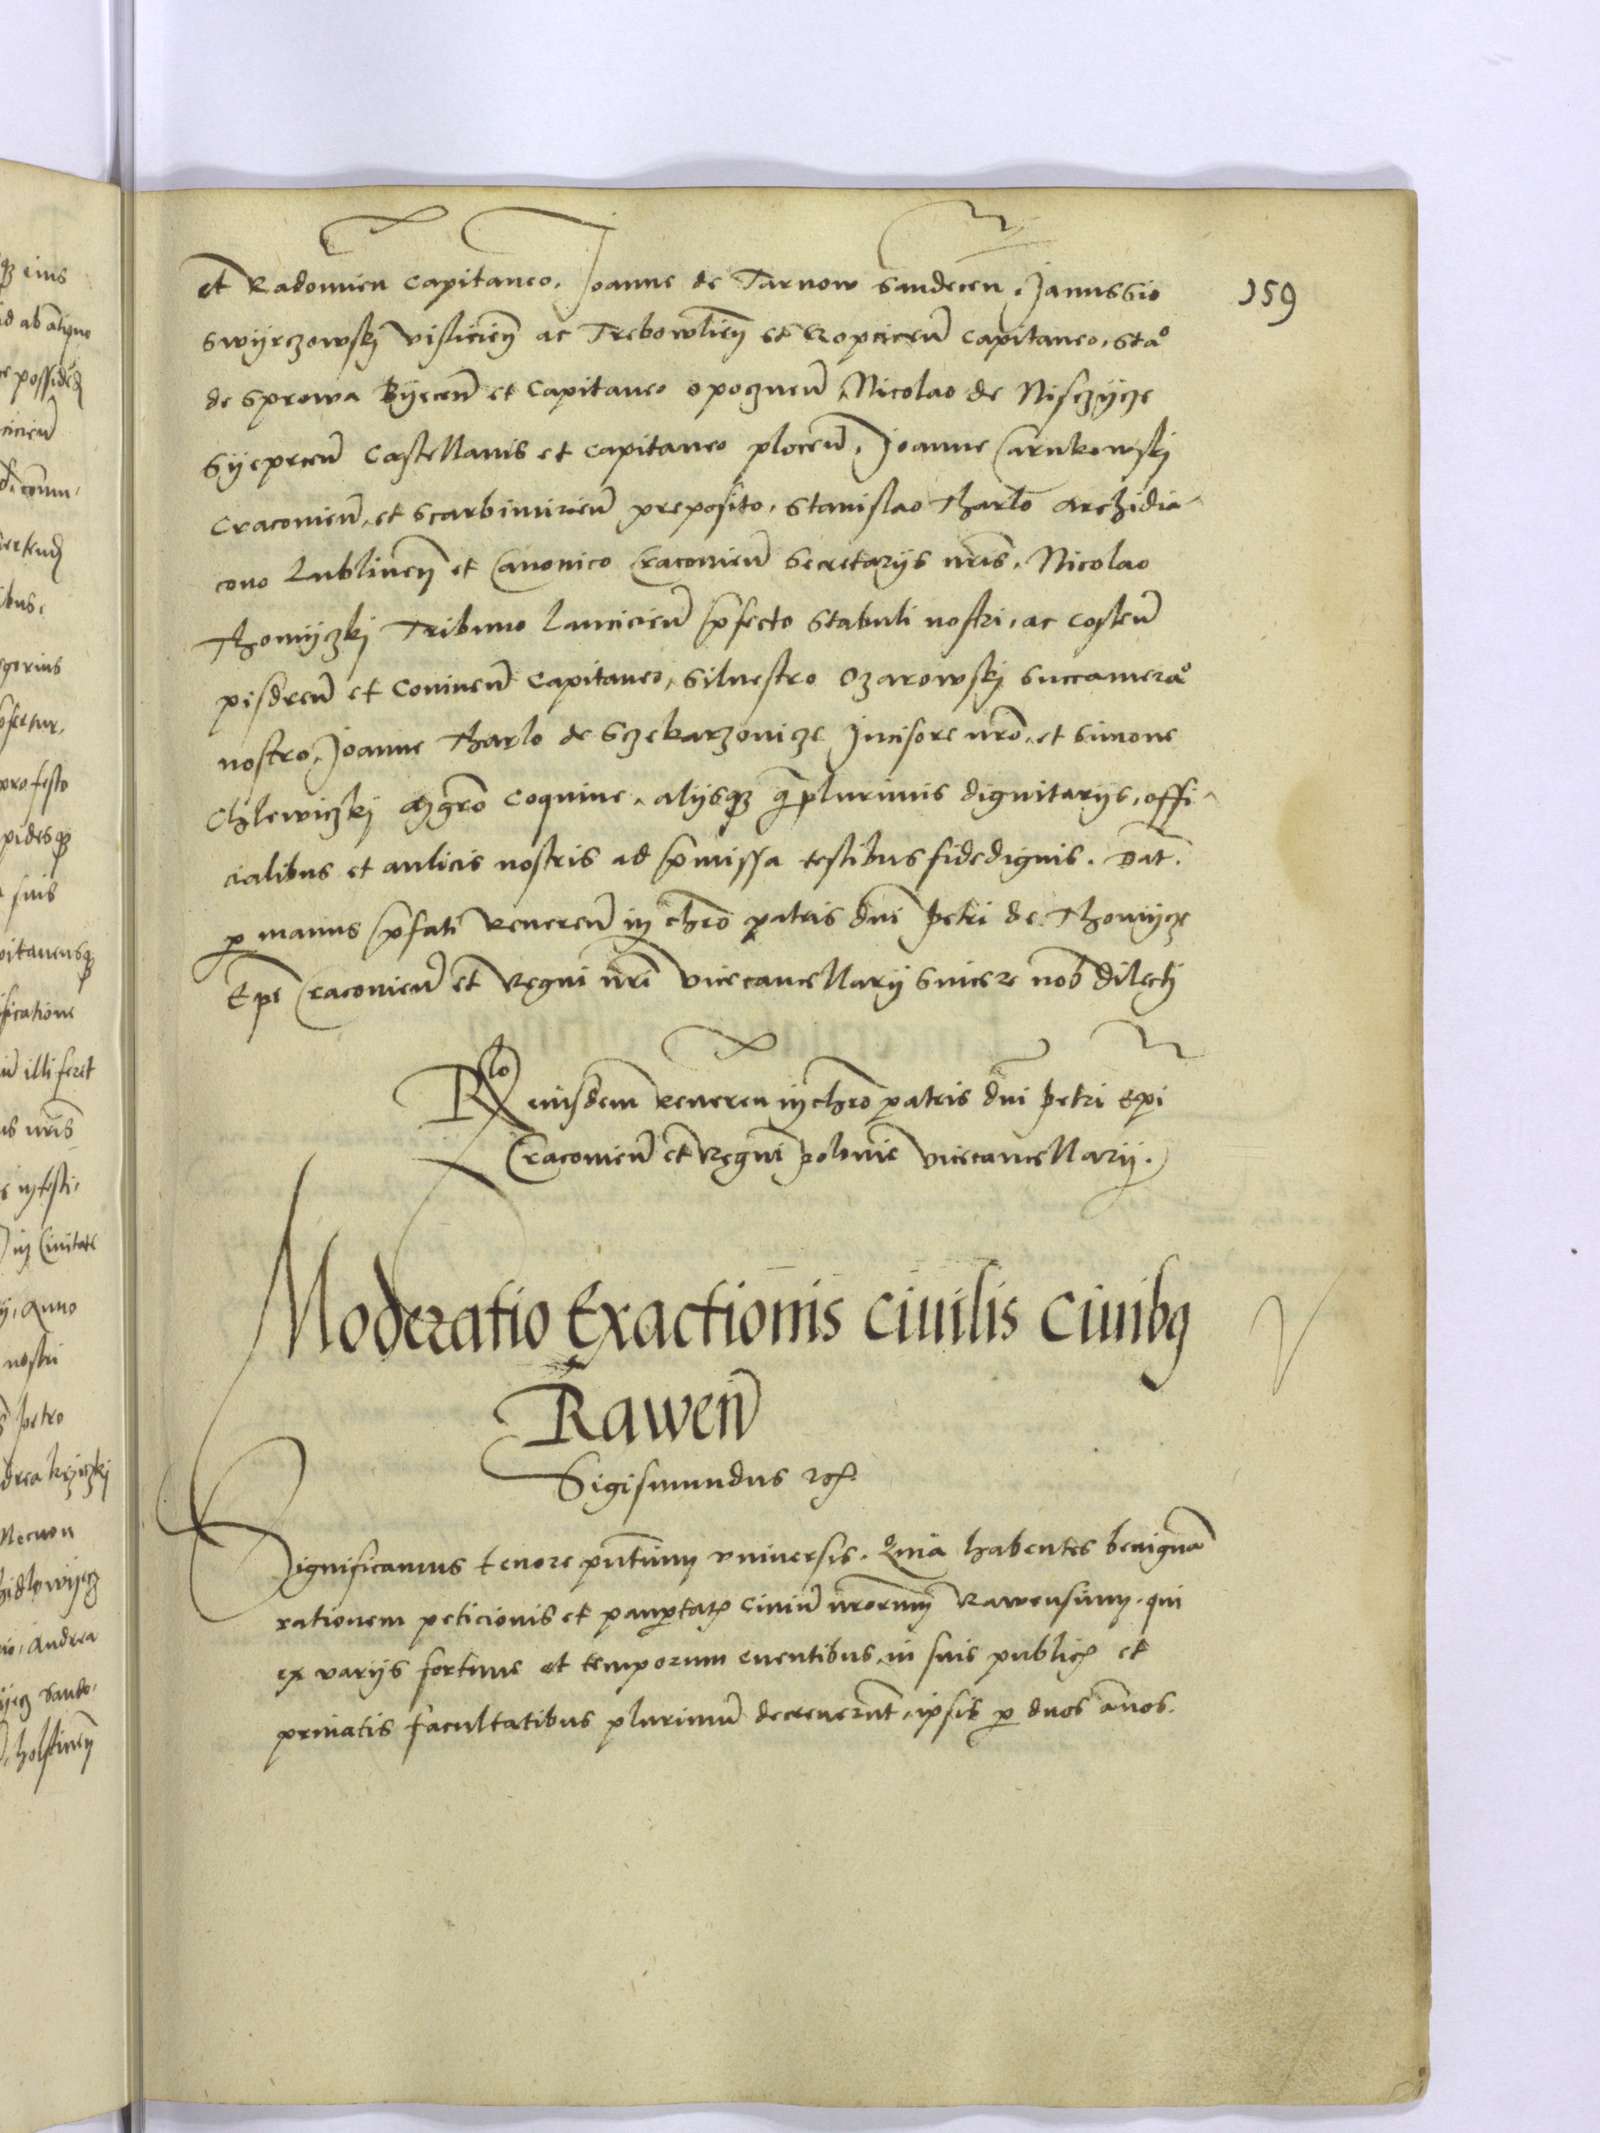 159
et Radomien Capitaneo. Joanne de Tarnow Sandecen. Janussio
Swÿrczowskj visliciēn ac Trebowliēn et Ropciceñ Capitaneo, Sta°
de Sprowa Bÿeceñ et Capitaneo opoczneñ, Nicolao de Nisczÿcze
Sÿeprceñ Castellanis et Capitaneo ploceñ, Joanne Carnkowskj
Cracovieñ, et Scarbimirieñ preposito, Stanislao Tharlo Archidia-
cono Lublineñ et Canonico Cracovieñ Secretarijs nr̄is. Nicolao
Thomÿczkj Tribuno Lancicieñ p̄fecto Stabuli nostri, ac Costeñ
pisdreñ et Conineñ Capitaneo, Silvestro Ozarowskj Succamera°
nostro, Joanne Tharlo de Sczekarzovicze Jncisore nr̄o, et Simone
Chlewiczkj Mgr̄o Coquine, alijsqꝫ q̄plurimis dignitarijs, offi-
cialibus et aulicis nostris ad p̄missa testibus fidedignis. Dat̄.
ꝑ manus p̄fati Revereñ in chr̄o patris dn̄i petri de Thomÿcze
Ep̄i Cracovieñ et Regni nr̄i vicecancellarij sincere nob̄ dilecti
Rlo eiusdem Reveren in chr̄o patris dn̄i petri Ep̄i
Cracovieñ et Regni polonie vicecancellarij.
Moderatio Exactionis Ciuilis Ciuibꝯ
Raweñ
Sigismundus Rex
Significamus tenore pn̄tium vniversis. Quia habentes benignā
rationem peticionis et paupertatis Ciuiū nr̄orum Rawensium, qui
ex varijs fortune et temporum eventibus, in suis publicis et
priuatis facultatibus plurimū decreverūt, ipsis ꝑ duos ānos.